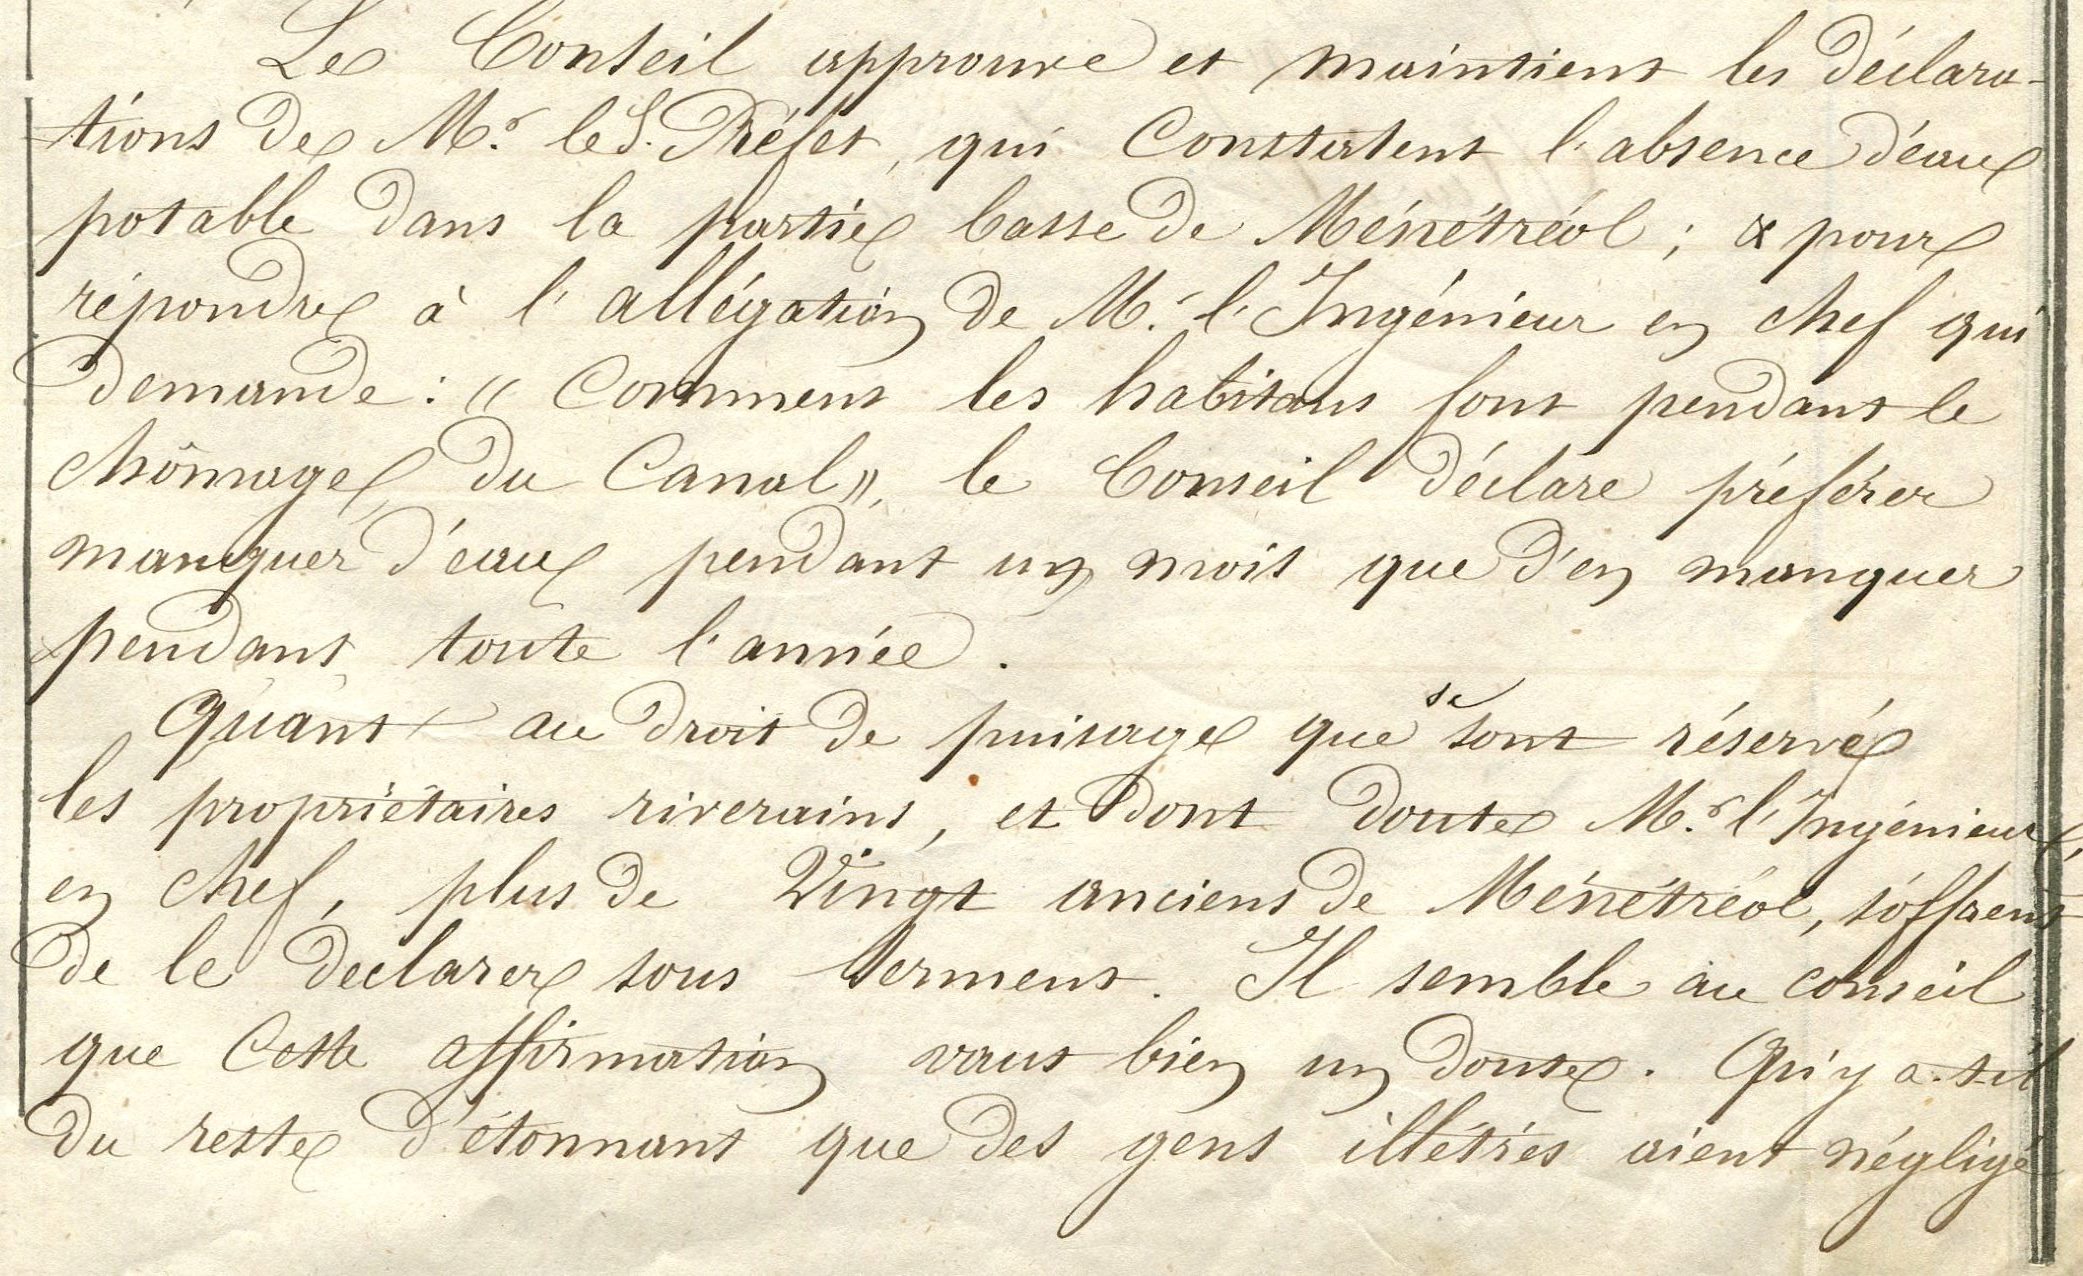 Le Conseil approuve et maintient les déclara-
tions de Mr. le S. Préfet, qui Constatent l'absence d'eau
potable dans la partie basse de Ménétréol ; & pour
répondre à l'allégation de Mr. l'Ingénieur en chef qui
demande : « Comment les habitans font pendant le
chômage du Canal », le Conseil déclare préférer
manquer d'eau pendant un mois que d'en manquer
pendant toute l'année.
Quant au droit de puisage que se sont réservé
les propriétaires riverains, et dont doute Mr. l'Ingénieur
en chef, plus de Vingt anciens de Ménétréol, s'offrent
de le declarer sous serment. Il semble au conseil
que Cette affirmation vaut bien un doute. Qu'y a-t-il
du reste d'étonnant que des gens illétrés aient négligé